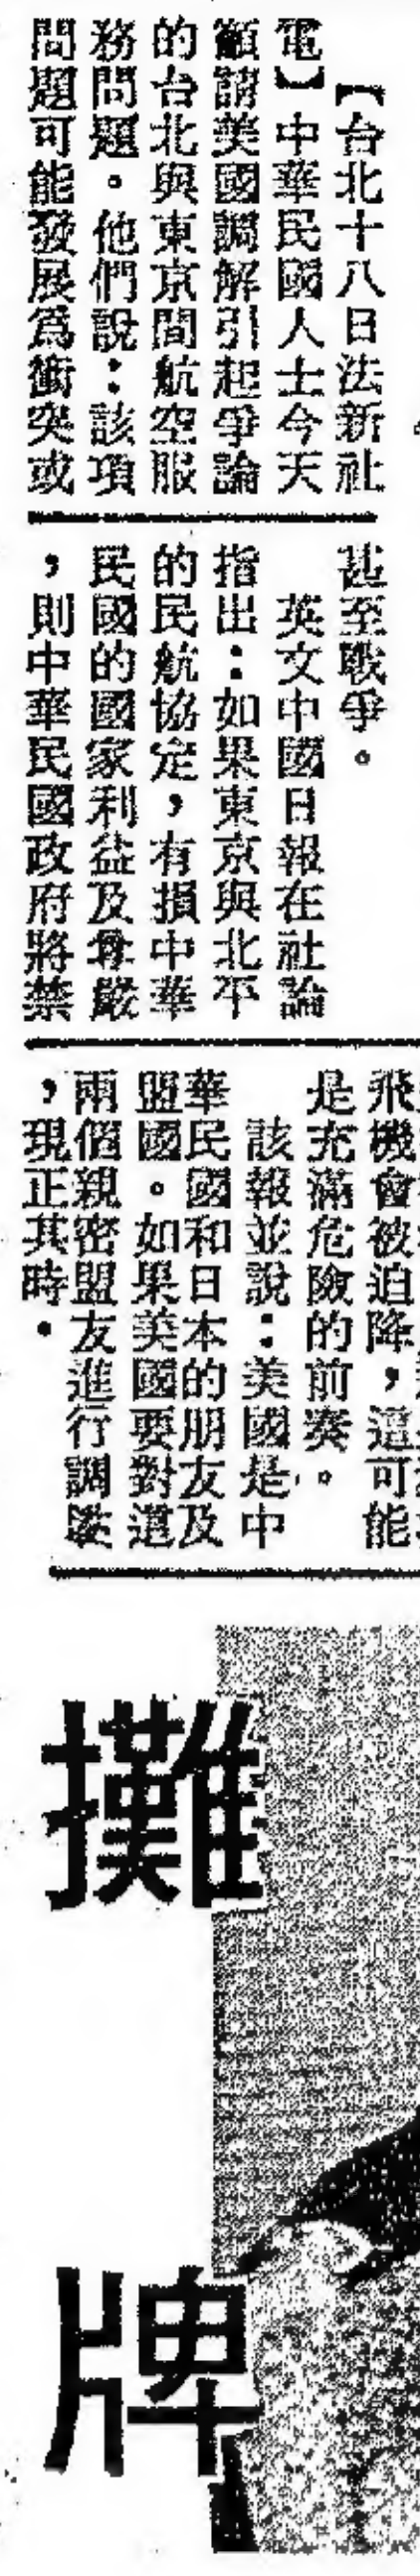 【台北十八日法新社
電】中華民國人士今天
籲請美國調解引起爭論
的台北與東京間航空服
務問題。他們說：該項
問題可能發展爲衝突或
甚至戰爭。
英文中國日報在社論
指出：如果東京與北平
的民航協定，有損中華
民國的國家利益及尊嚴
，則中華民國政府將禁
飛機會被迫降，這可能
是充滿危險的前奏。
該報並說：美國是中
華民國和日本的朋友及
盟國。如果美國要對這
兩個親密盟友進行調
，現正其時。
攤牌